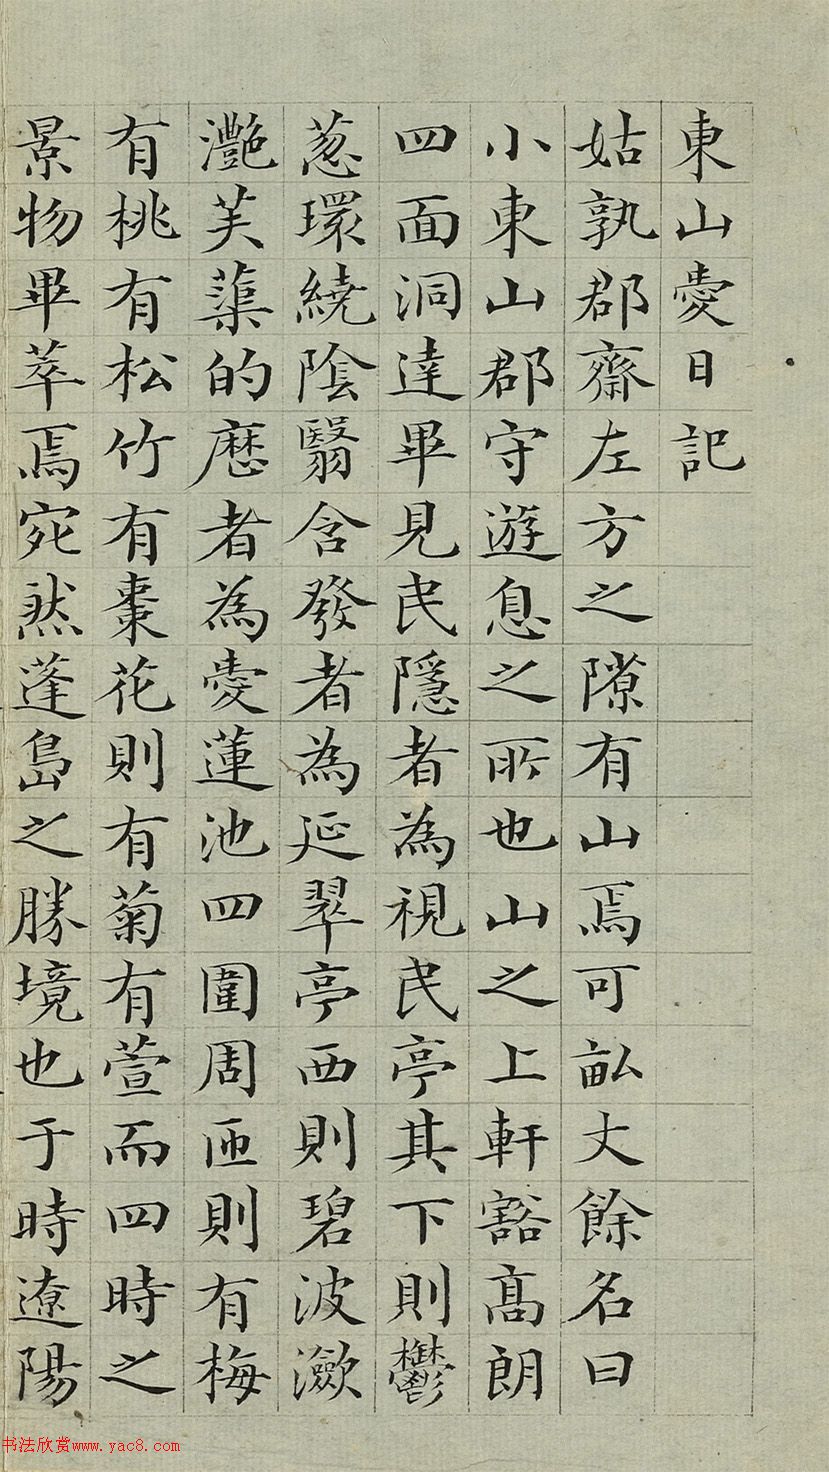 東山愛日記
姑孰郡齋左方之隙有山焉可畝丈餘名曰
小東山郡守遊息之所也山之上軒豁髙朗
四面洞達畢見民隱者為視民亭其下則鬱
葱環繞陰翳含發者為延翠亭西則碧波瀲
灧芙蕖的歷者為愛蓮池四圍周匝則有梅
有桃有松竹有棗花則有菊有萱而四時之
景物畢萃焉宛然蓬島之勝境也于時遼陽
书法欣赏www.yac8.com